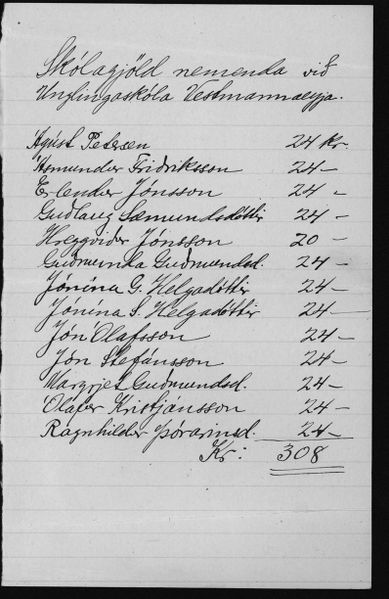 Skólagjöld nemenda við
Unglingaskóla Vestmannaeyja.
Ágúst Petersen 24 kr.
Ásmunder Fridriksson 24 –
Erlender Jónsson 24 –
Gudlaug Sæmundsdóttir 24 –
Hreggvider Jónsson 20 –
Guðmunda Guðmundsd. 24 –
Jónína G. Helgadóttir 24 –
Jónína S. Helgadóttir 24 –
Jón Ólafsson 24 –
Jón Stefánsson 24 –
Margrjet Guðmundsd. 24 –
Ólafer Kristjánsson 24 –
Ragnhilder Þórarinsd. 24 –
Kr: 308